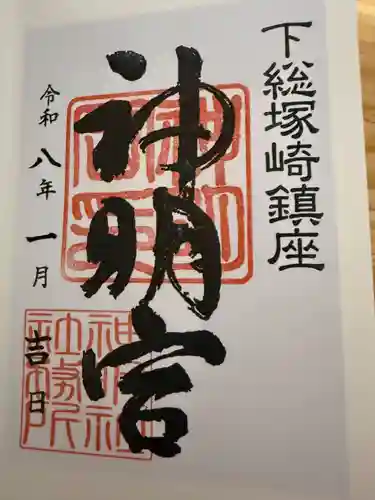 下総塚崎鎮座
神明宮
令和八年一月
吉日